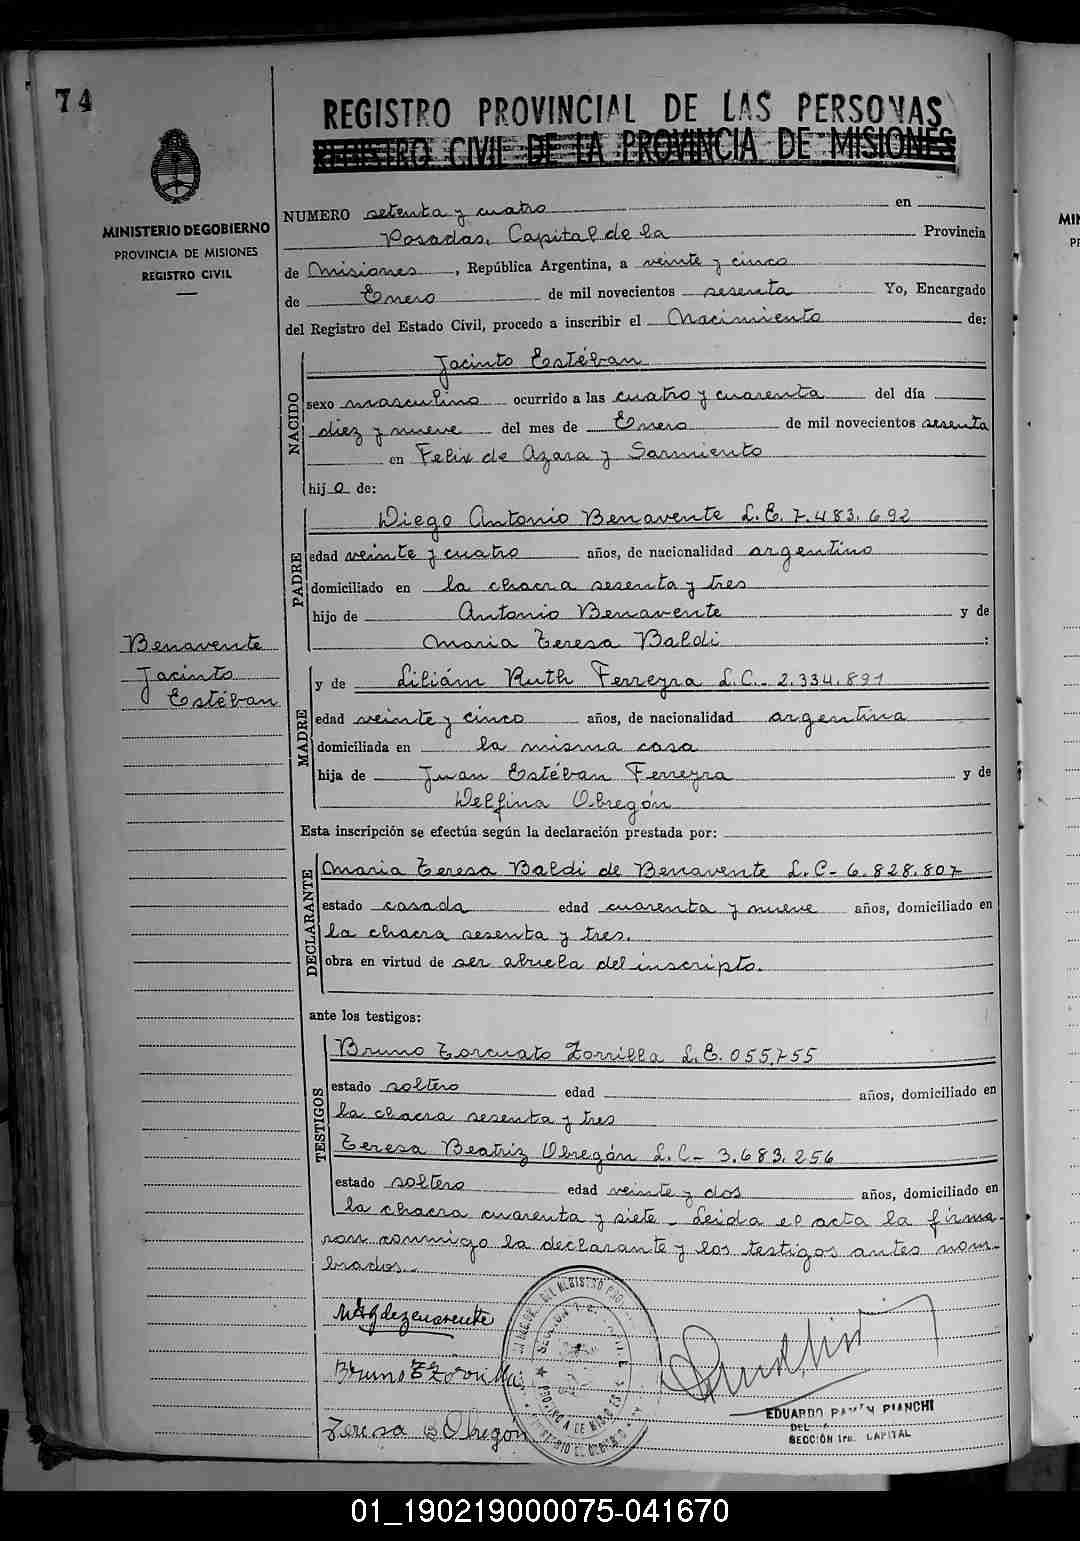 74
REGISTRO PROVINCIAL DE LAS PERSONAS
REGISTRO CIVIL DE LA PROVINCIA DE MISIONES
MINISTERIO DE GOBIERNO
PROVINCIA DE MISIONES
REGISTRO CIVIL
NUMERO setenta y cuatro en
Posadas, Capital de la Provincia
de Misiones, República Argentina, a veinte y cinco
de Enero de mil novecientos sesenta Yo, Encargado
del Registro del Estado Civil, procedo a inscribir el Nacimiento de:
NACIDO
Jacinto Estéban
sexo masculino ocurrido a las cuatro y cuarenta del día
diez y nueve del mes de Enero de mil novecientos sesenta
en Felix de Azara y Sarmiento
hijo de:
PADRE
Diego Antonio Benavente L.E. 7.483.692
edad veinte y cuatro años, de nacionalidad argentino
domiciliado en la chacra sesenta y tres
hijo de Antonio Benavente y de
Maria Teresa Baldi :
Benavente
Jacinto
Estéban
MADRE
y de Lilián Ruth Ferreyra L.C.- 2.334.891
edad veinte y cinco años, de nacionalidad argentina
domiciliada en la misma casa
hija de Juan Estéban Ferreyra y de
Delfina Obregón
Esta inscripción se efectúa según la declaración prestada por:
DECLARANTE
Maria Teresa Baldi de Benavente L.C- 6.828.807
estado casada edad cuarenta y nueve años, domiciliado en
la chacra sesenta y tres.
obra en virtud de ser abuela del inscripto.
ante los testigos:
TESTIGOS
Bruno Torcuato Zorrilla L.E. 055.755
estado soltero edad años, domiciliado en
la chacra sesenta y tres
Teresa Beatriz Obregón L.C- 3.683.256
estado soltero edad veinte y dos años, domiciliado en
la chacra cuarenta y siete - Leida el acta la firma-
ron conmigo la declarante y los testigos antes nom-
brados.-
Bruno T Zorrilla
Teresa B Obregon
EDUARDO RAMÓN PIANCHI
DEL
SECCIÓN 1ra. CAPITAL
01_190219000075-041670